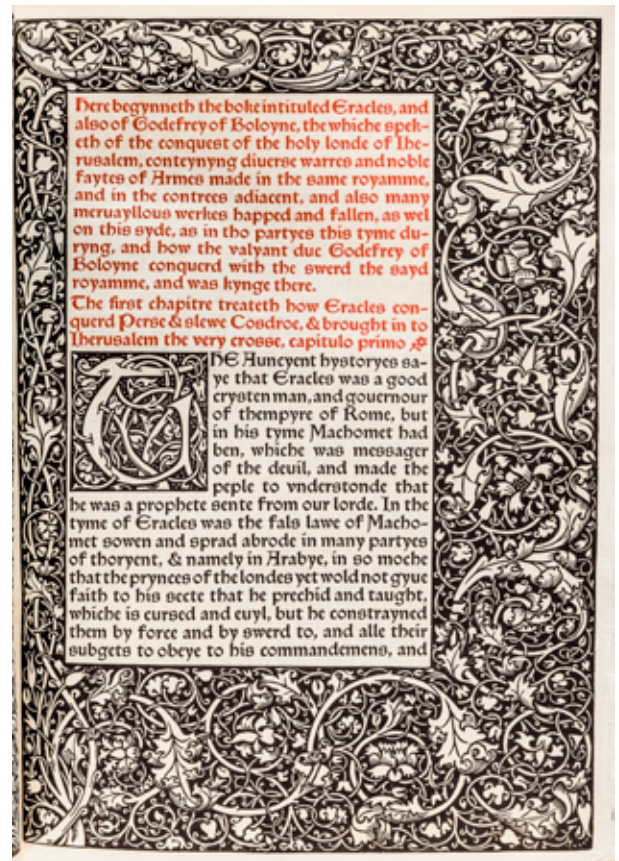 Here begynneth the boke intituled Eracles, and
also of Godefrey of Boloyne, the whiche spek-
eth of the conquest of the holy londe of Ihe-
rusalem, conteynyng diuerse warres and noble
faytes of Armes made in the same royamme,
and in the contrees adiacent, and also many
meruayllous werkes happed and fallen, as wel
on this syde, as in tho partyes this tyme du-
ryng, and how the valyant duc Godefrey of
Boloyne conquerd with the swerd the sayd
royamme, and was kynge there.
The first chapitre treateth how Eracles con-
querd Perse & slewe Cosdroe, & brought in to
Iherusalem the very crosse, capitulo primo
THE Auncyent hystoryes sa-
ye that Eracles was a good
crysten man, and gouernour
of thempyre of Rome, but
in his tyme Machomet had
ben, whiche was messager
of the deuil, and made the
peple to vnderstonde that
he was a prophete sente from our lorde. In the
tyme of Eracles was the fals lawe of Macho-
met sowen and sprad abrode in many partyes
of thoryent, & namely in Arabye, in so moche
that the prynces of the londes yet wold not gyue
faith to his secte that he prechid and taught,
whiche is cursed and euyl, but he constrayned
them by force and by swerd to, and alle their
subgets to obeye to his commandemens, and